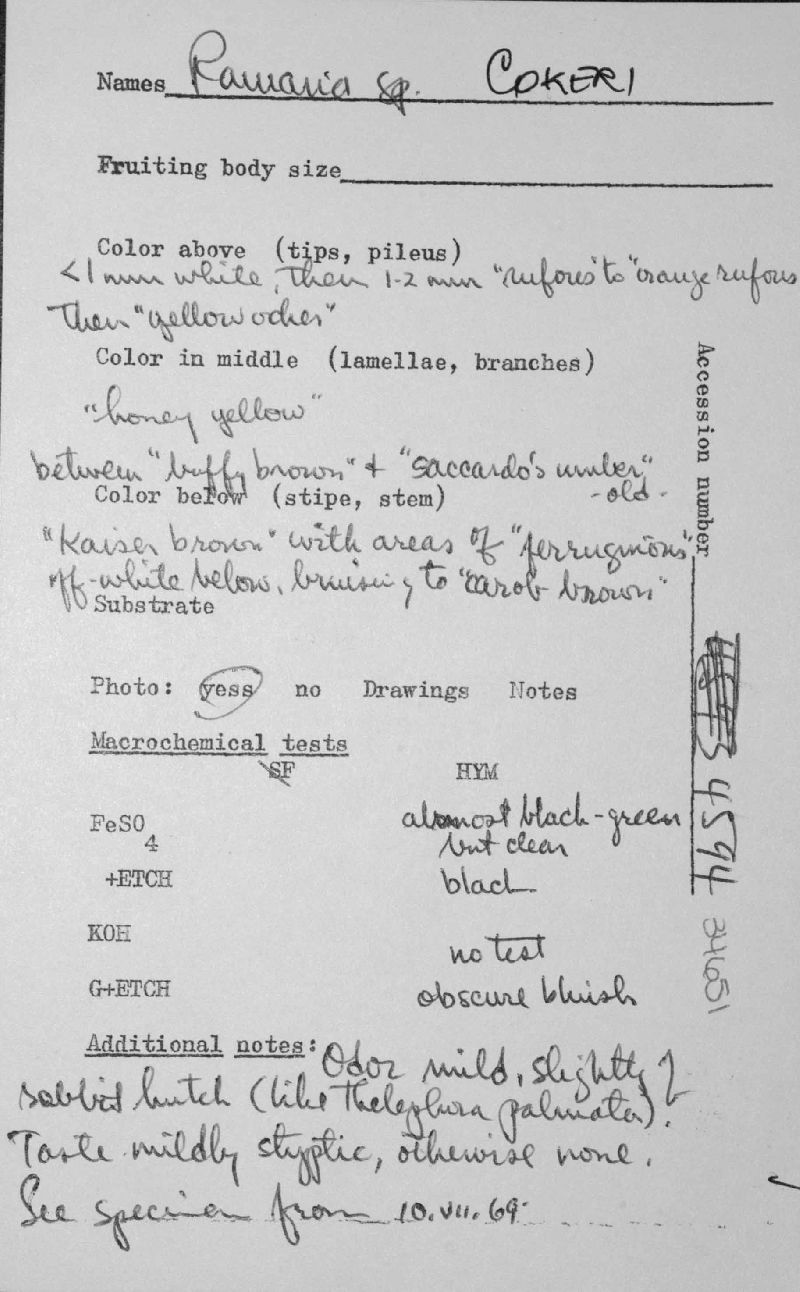 Names Ramaria sp. COKERI
Fruiting body size
Color above (tips, pileus)
<1 mm white, then 1-2 mm "rufous" to "orange rufous"
Then "yellow ocher"
Color in middle (lamellae, branches)
"honey yellow"
between "buffy brown" + "saccardo's umber"
- old -
Color below (stipe, stem)
"Kaiser brown" with areas of "ferruginous"
off-white below, bruising to "carob brown"
Substrate
Photo: yess no Drawings Notes
Macrochemical tests
SF HYM
FeSO4 almost black-green
but clear
+ETCH black
KOH no test
G+ETCH obscure bluish
Additional notes: Odor mild, slightly of
rabbit hutch (like Thelephora palmata).
Taste mildly styptic, otherwise none.
See specimen from 10.VII.69
Accession number
4594
34651